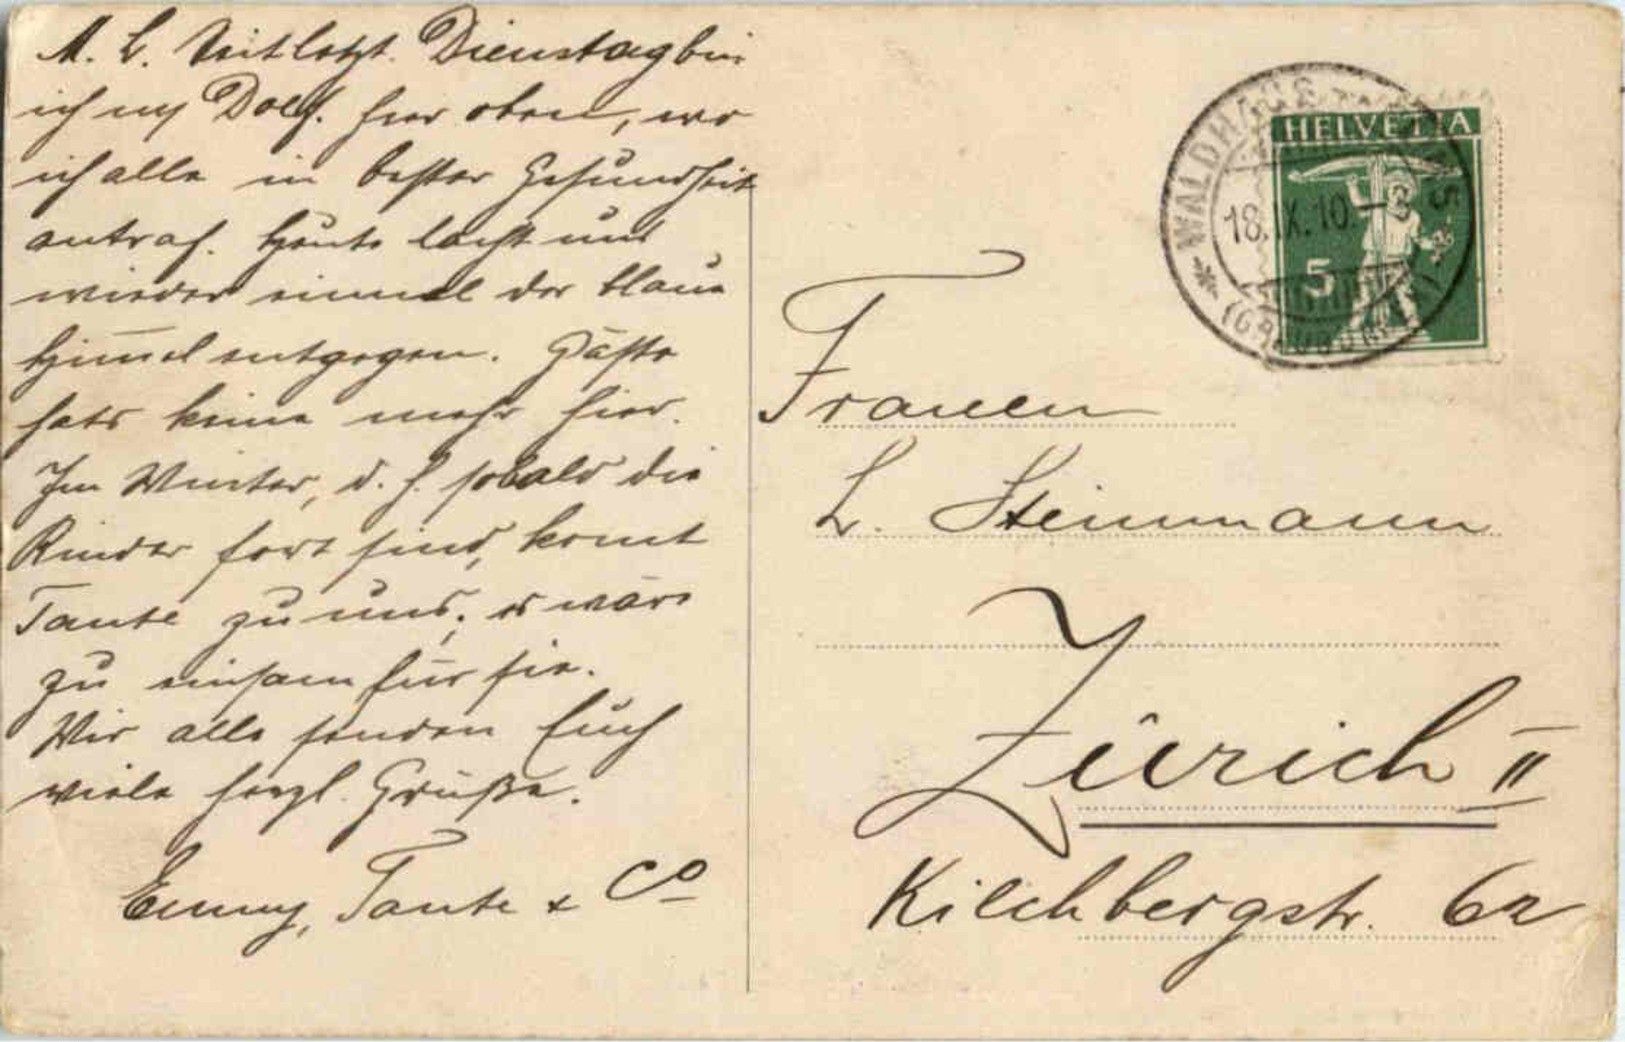 M. L. Seit letzt. Dienstag bin
ich m/ Dolf. hier oben, wo
ich alle in bester Gesundheit
antraf. Heute lacht uns
wieder einmal der blaue
Himel entgegen. Gäste
hats keine mehr hier.
Im Winter, d. h. sobald die
Kinder fort sind, komt
Tante zu uns, es wäre
zu einsam für sie.
Wir alle senden Euch
viele herzl. Grüße.
Emmy, Tante & Co
WALDHAUS FLIMS
18.IX.10.
(GRAUBÜNDEN)
HELVETIA
5
Frauen
L. Steinmann
Zürich II
Kilchbergstr. 62